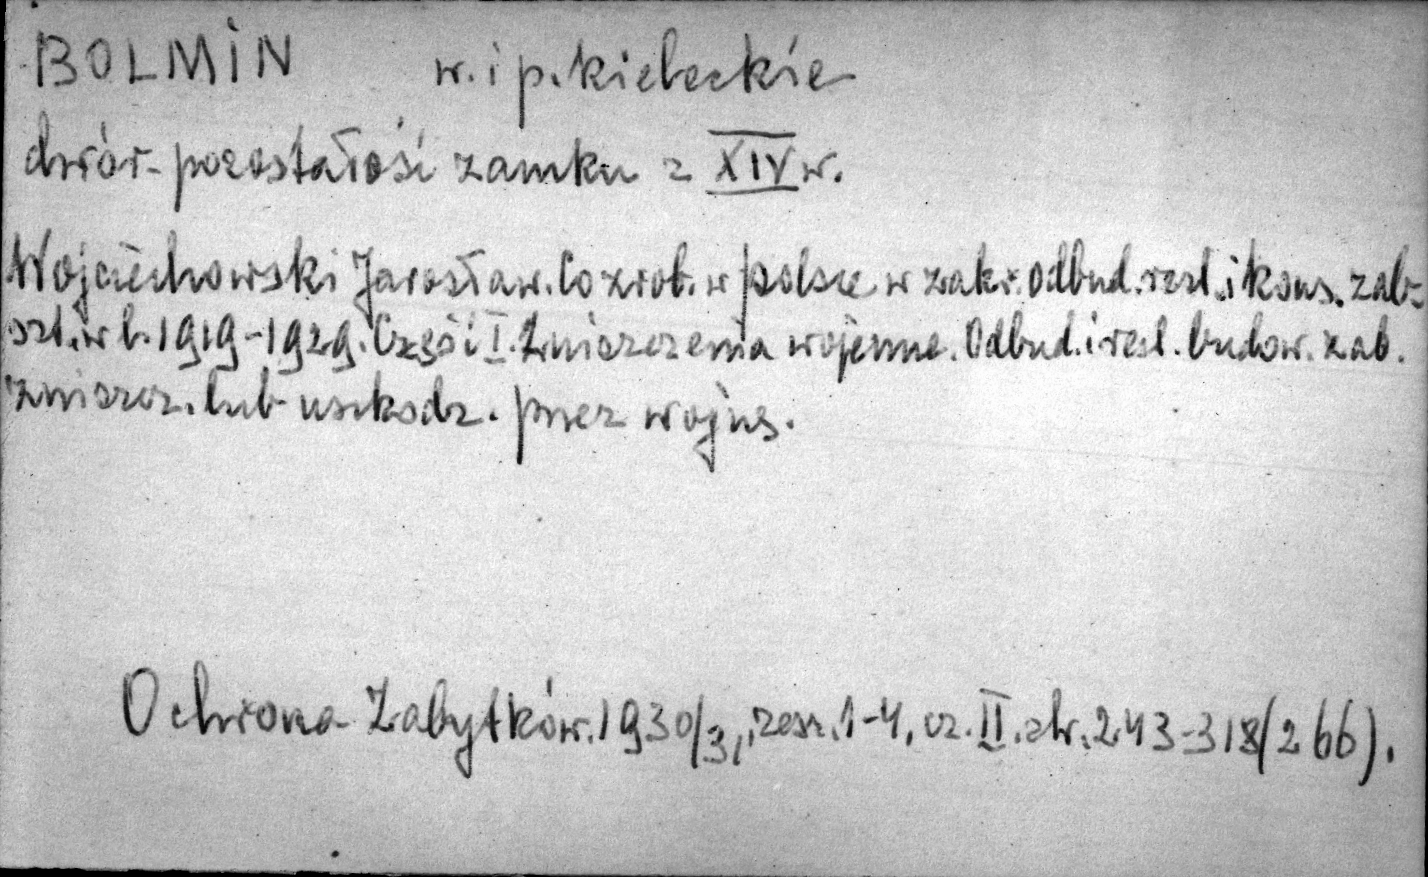 BOLMIN w. i p. kieleckie
dwór - pozostałości zamku z XIV w.
Wojciechowski Jarosław. Co zrob. w Polsce w zakr. odbud. rest. i kons. zab.
szt. w l. 1919-1929. Część I. Zniszczenia wojenne. Odbud. i rest. budow. zab.
zniszcz. lub uszkodz. przez wojnę.
Ochrona Zabytków. 1930/31, zesz. 1-4, cz. II. str. 243-318 (266).